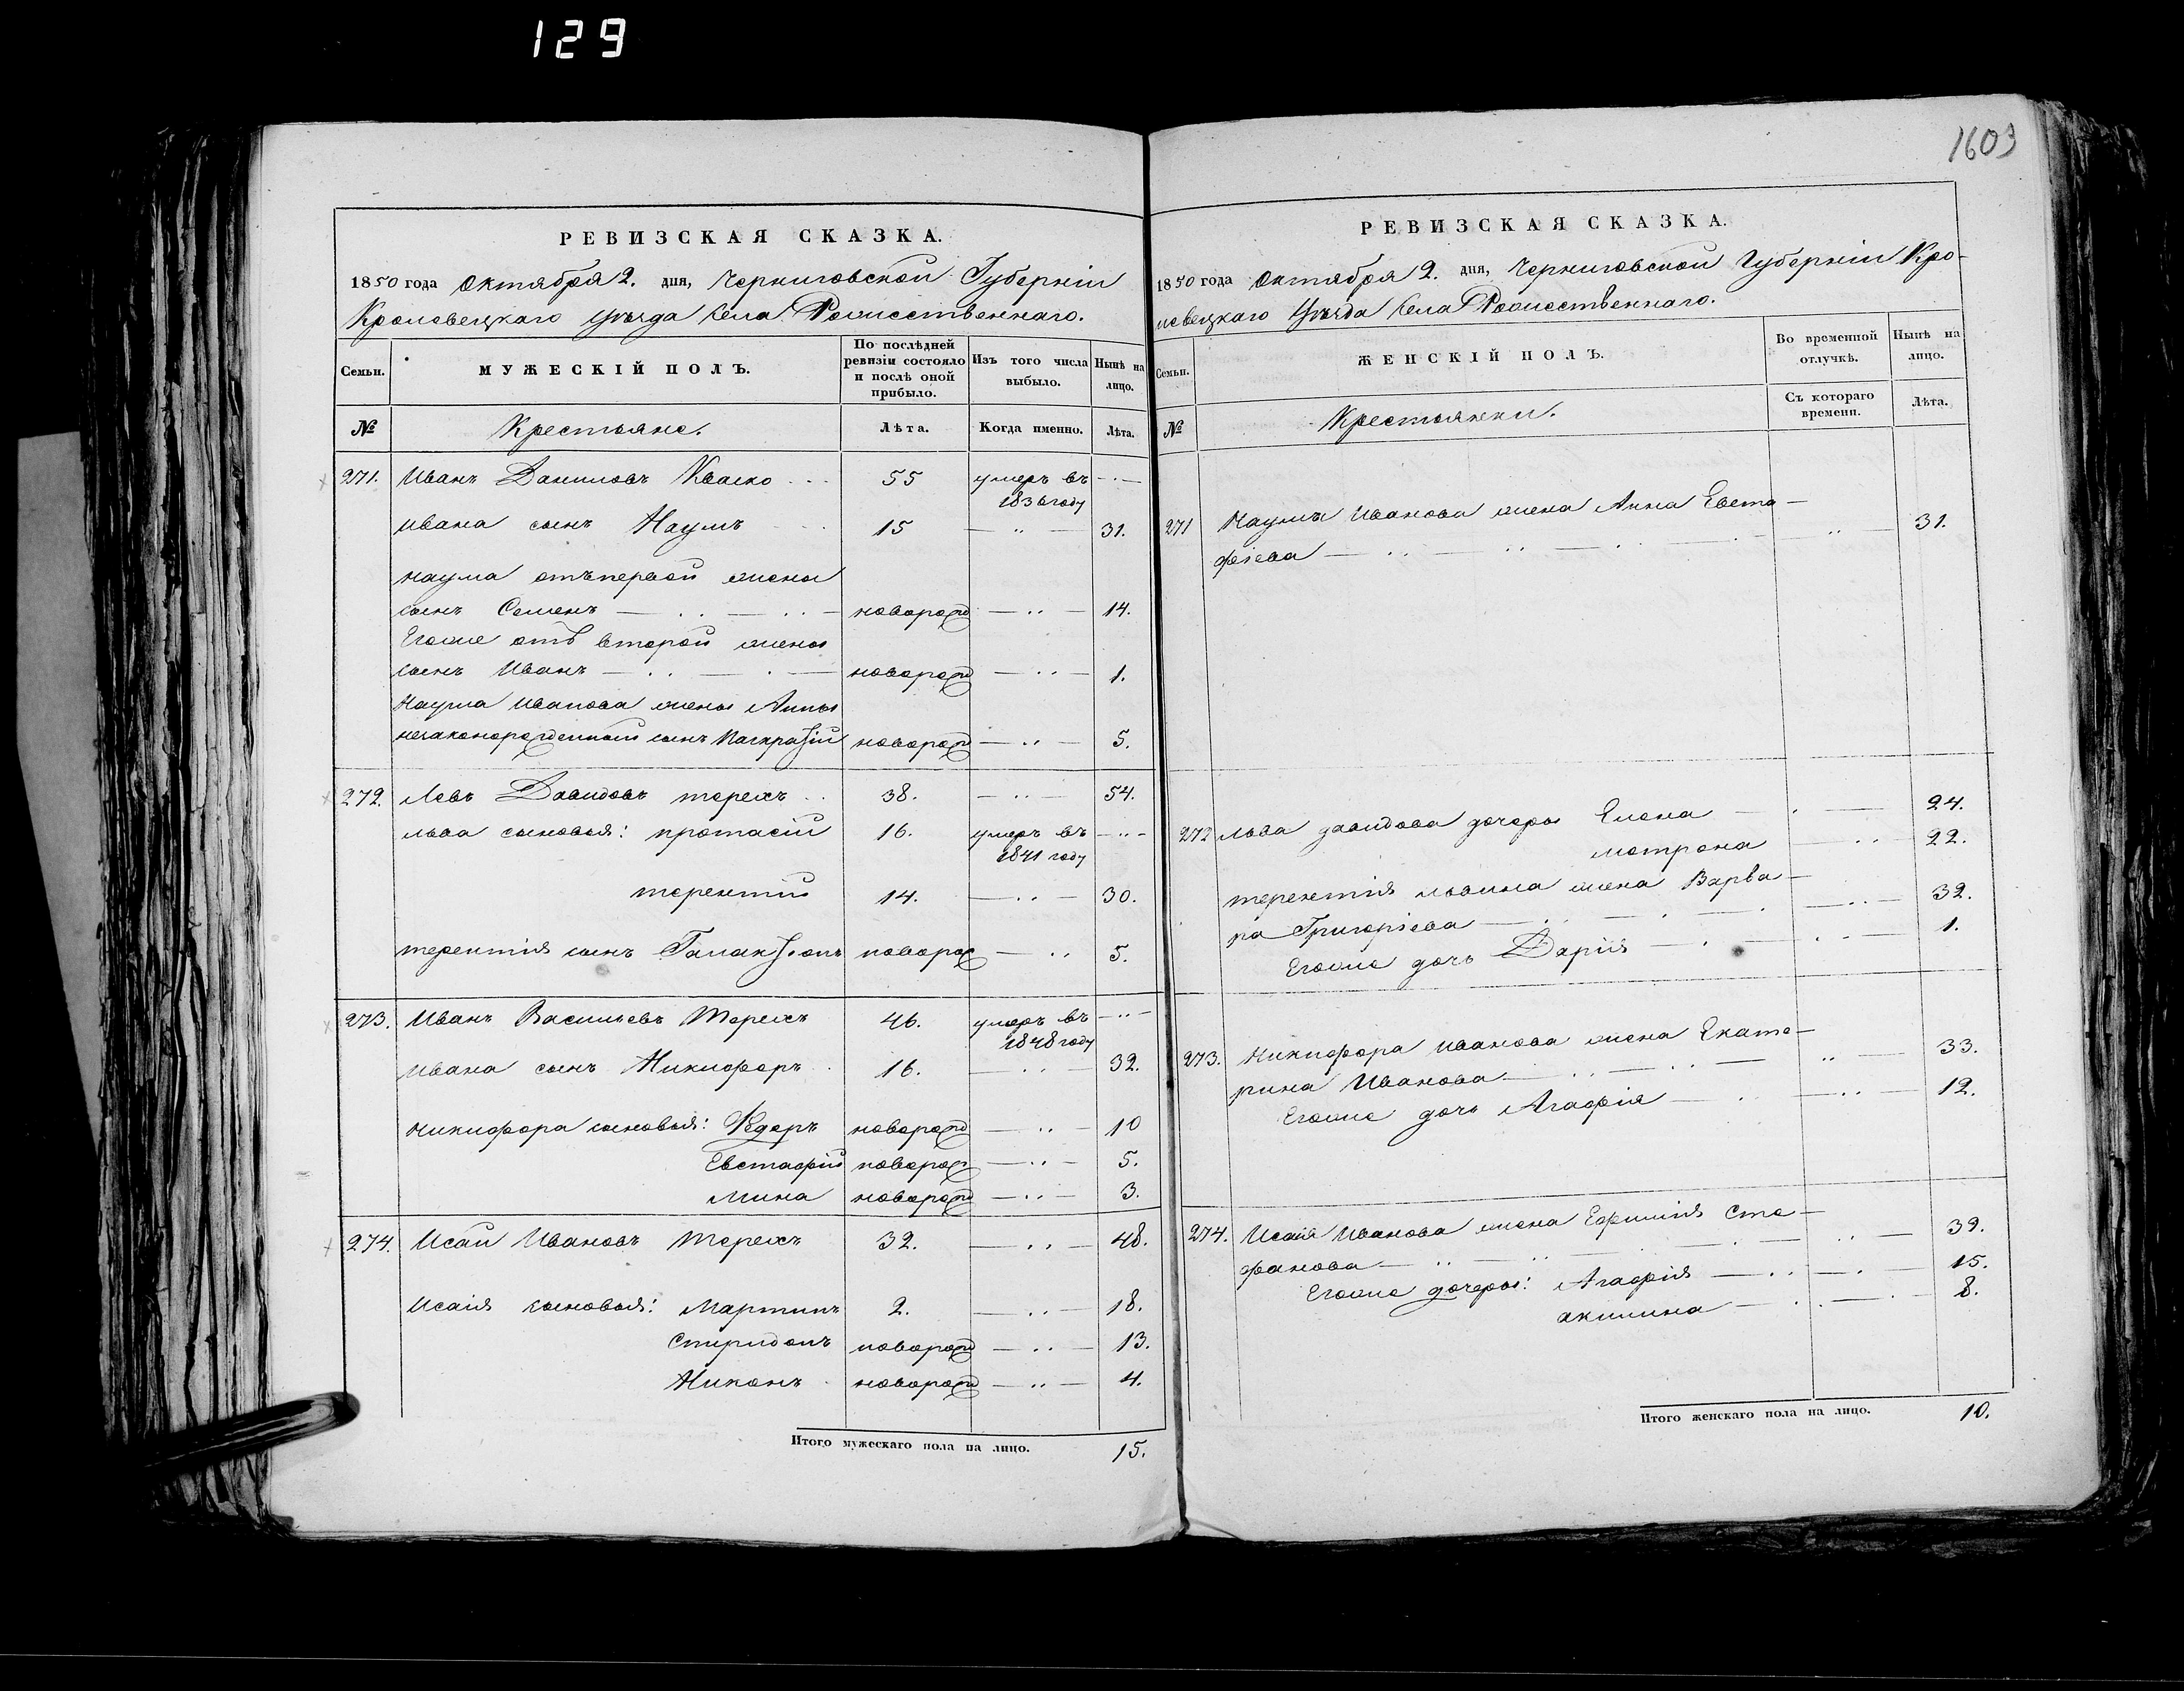 129
1603
РЕВИЗСКАЯ СКАЗКА.
1850 года Октября 2. дня, Черниговской Губерніи
Кролевецкаго уѣзда села Рожественнаго.
Семьи.
МУЖЕСКІЙ ПОЛЪ.
По послѣдней ревизіи состояло и послѣ оной прибыло.
Изъ того числа выбыло.
Нынѣ на лицо.
№
Крестьяне.
Лѣта.
Когда именно.
Лѣта.
271. Иванъ Даниловъ Кваско 55 умеръ въ
1836 году
Ивана сынъ Наумъ 15 31.
Наума отъ первой жены
сынъ Семенъ новорожд 14.
Егоже отъ второй жены
сынъ Иванъ новорожд 1.
Наума Иванова жены Анны
незаконорожденный сынъ Панкратій новорожд 5.
272. Левъ Давидовъ терехъ 38. 54.
льва сыновья: протасій 16. умеръ въ
1841 году
терентій 14. 30.
терентія сынъ Галактіонъ новорож 5.
273. Иванъ Васильевъ Терехъ 46. умеръ въ
1848 году
Ивана сынъ Никифоръ 16. 32.
Никифора сыновья: Федоръ новорожд 10
Евстафій новорож 5.
Мина новорожд 3.
274. Исай Ивановъ Терехъ 32. 48.
Исаія сыновья: Мартинъ 2. 18.
Спиридонъ новорожд 13.
Никонъ новорожд 4.
Итого мужескаго пола на лицо. 15.
РЕВИЗСКАЯ СКАЗКА.
1850 года Октября 2. дня, Черниговской Губерніи Кро-
левецкаго Уѣзда села Рожественнаго.
Семьи.
ЖЕНСКІЙ ПОЛЪ.
Во временной отлучкѣ.
Нынѣ на лицо.
№
Крестьянки.
Съ котораго времени.
Лѣта.
271 Наума Иванова жена Анна Евста-
фіева 31.
272 льва давидова дочеры Елена 24.
мотрона 22.
терентія львина жена Варва-
ра Григоріева 32.
Егоже дочь Дарія 1.
273. Никифора Иванова жена Екате-
рина Иванова 33.
Егоже дочь Агафія 12.
274. Исаія Иванова жена Ефимія Сте-
фанова 39.
Егоже дочеры: Агафія 15.
акилина 8.
Итого женскаго пола на лицо. 10.